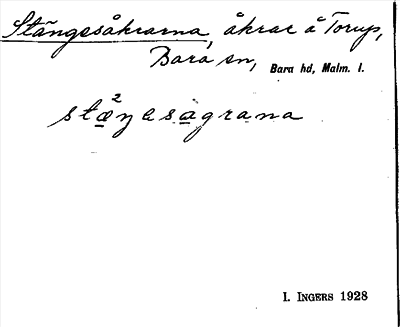 Stångesåkrarna, åkrar å Torup,
Bara sn, Bara hd, Malm. l.
st²æŋesagrana
I. INGERS 1928